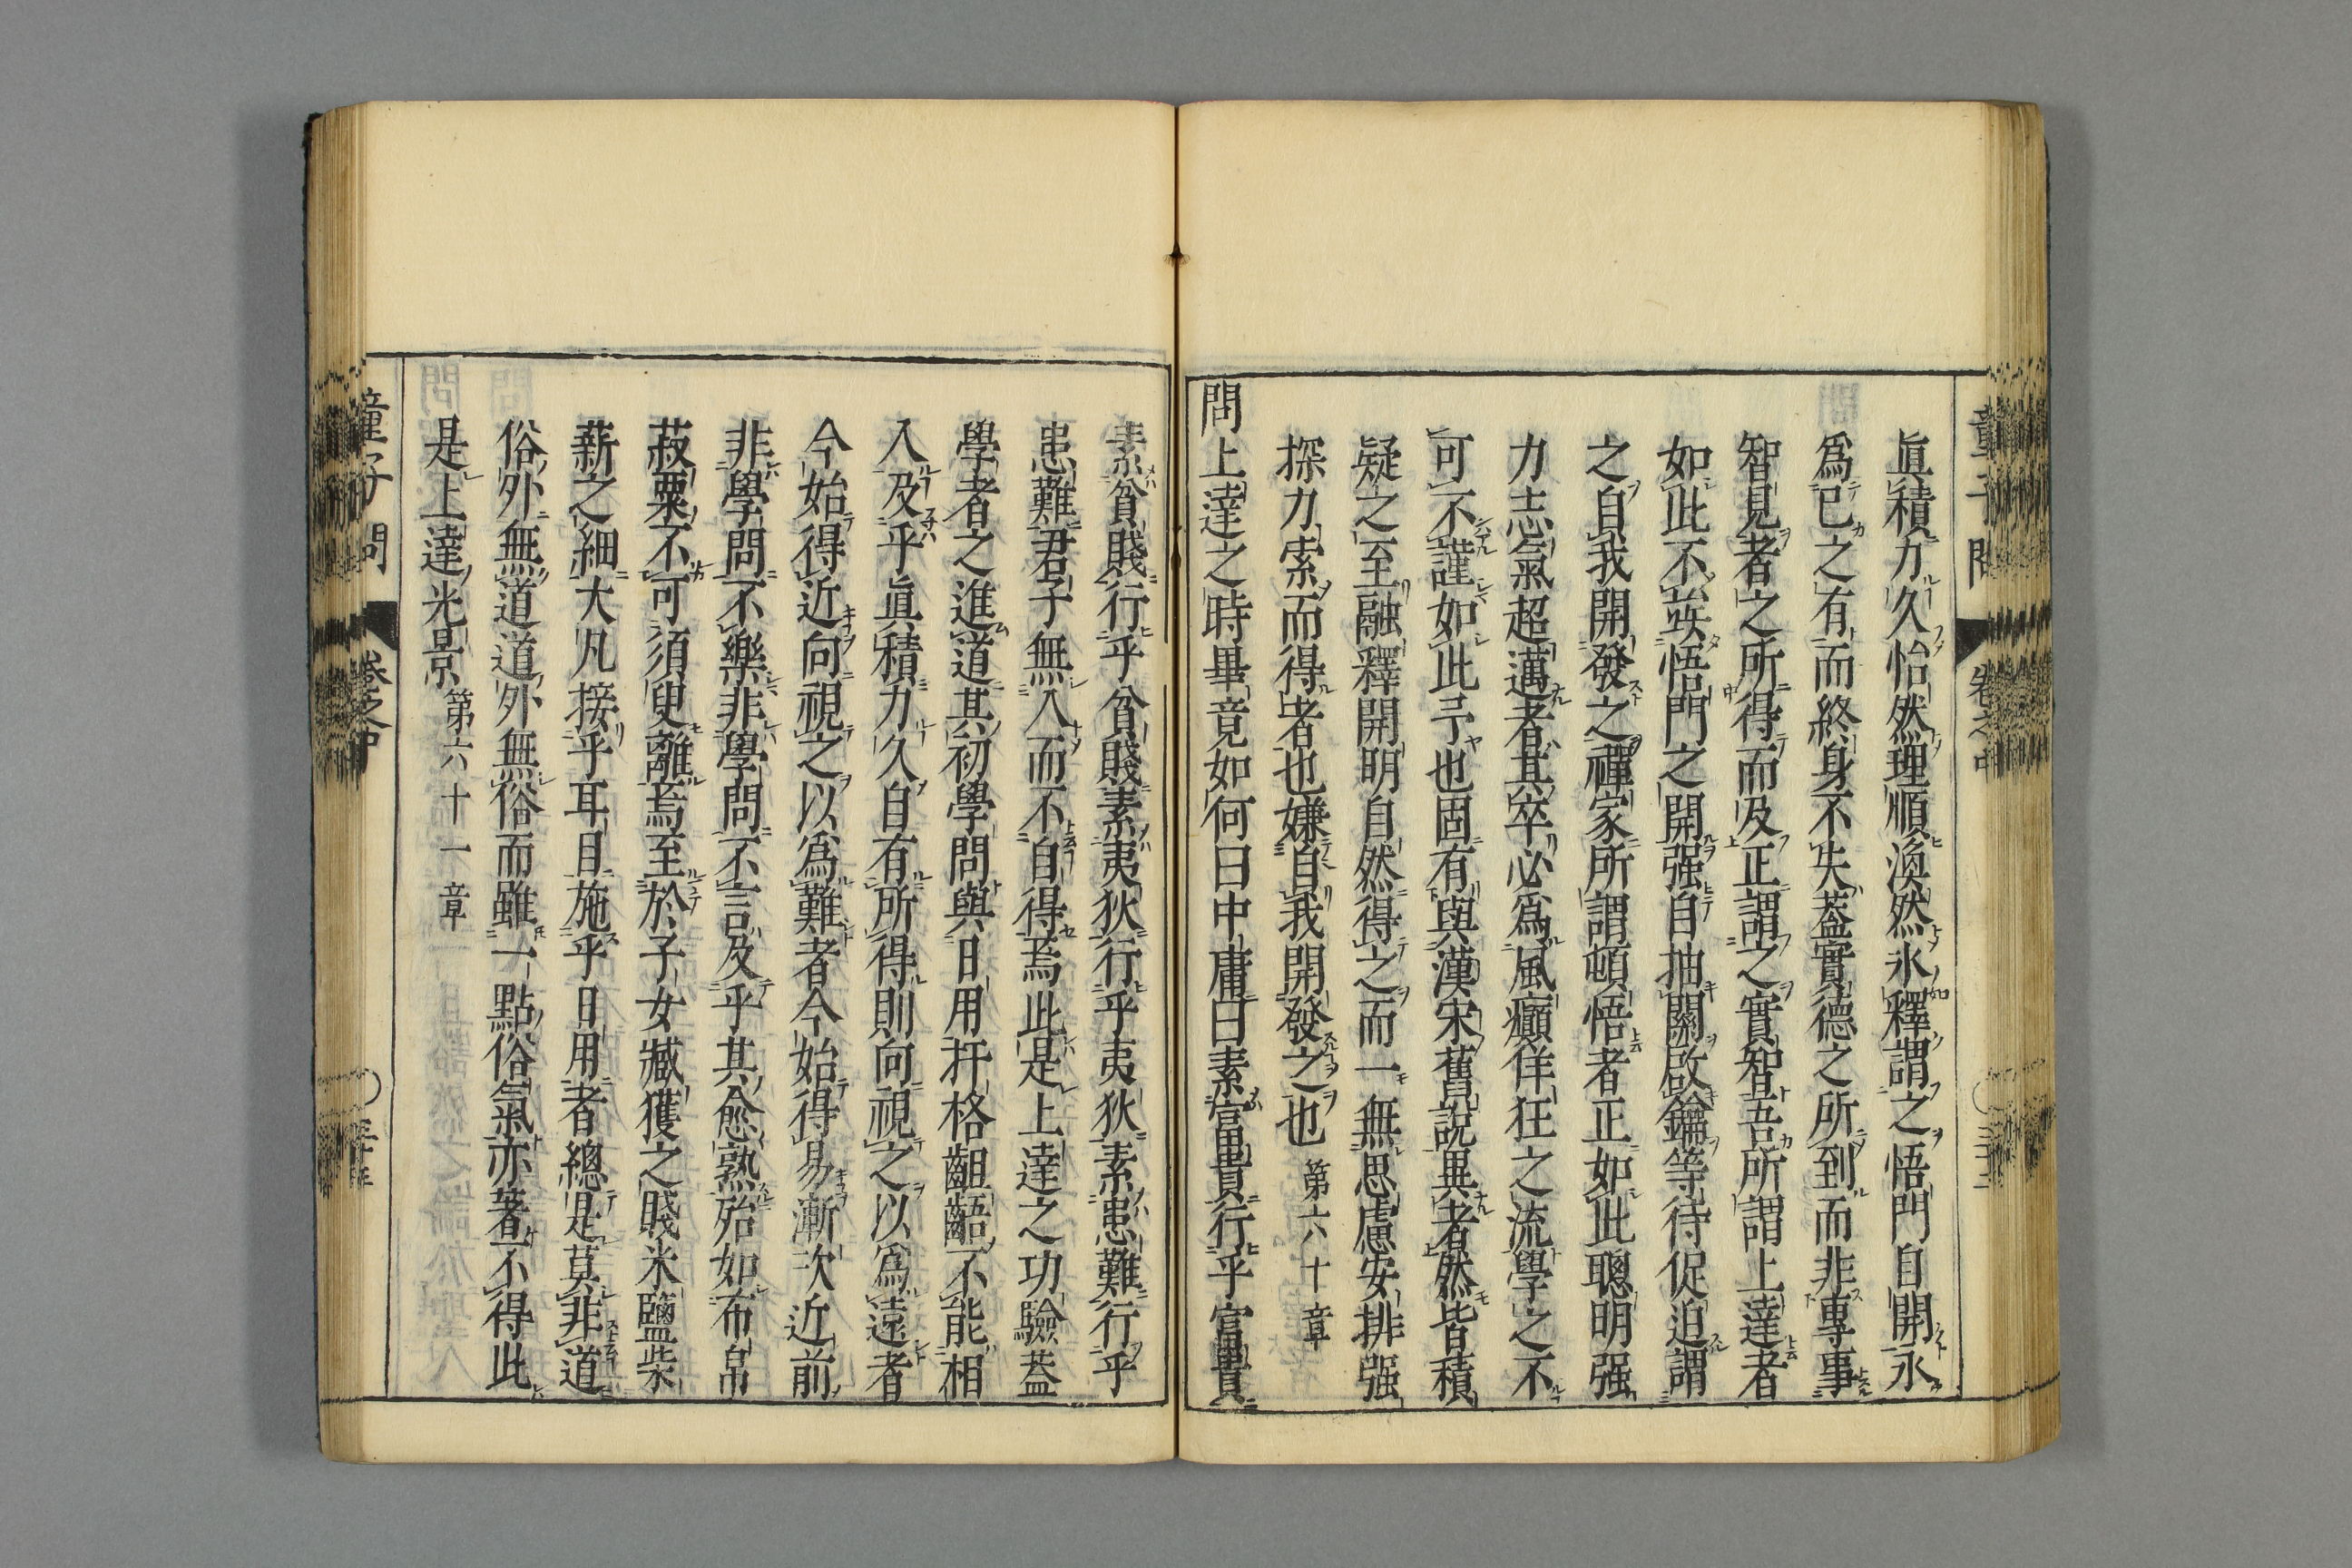 眞積力久怡然理順渙然氷釋謂之悟門自開永
爲己之有而終身不失蓋實德之所到而非專事
智見者之所得而及正謂之實智吾所謂上達者
如此不竢悟門之開强自抽關啟鑰等待促迫謂
之自我開發之禪家所謂頓悟者正如此聰明强
力志氣超邁者其卒必爲風癲佯狂之流學之不
可不謹如此予也固有與漢宋舊說異者然皆積
疑之至融釋開明自然得之而一無思慮安排强
探力索而得者也嫌自我開發之也 第六十章
問上達之時畢竟如何曰中庸曰素富貴行乎富貴
素貧賤行乎貧賤素夷狄行乎夷狄素患難行乎
患難君子無入而不自得焉此是上達之功驗蓋
學者之進道其初學問與日用扞格齟齬不能相
入及乎眞積力久自有所得則向視之以爲遠者
今始得近向視之以爲難者今始得易漸次近前
非學問不樂非學問不言及乎其愈熟殆如布帛
菽粟不可須臾離焉至於子女臧獲之賤米鹽柴
薪之細大凡接乎耳目施乎日用者總是莫非道
俗外無道道外無俗而雖一點俗氣亦著不得此
是上達光景 第六十一章
童子問 卷之中